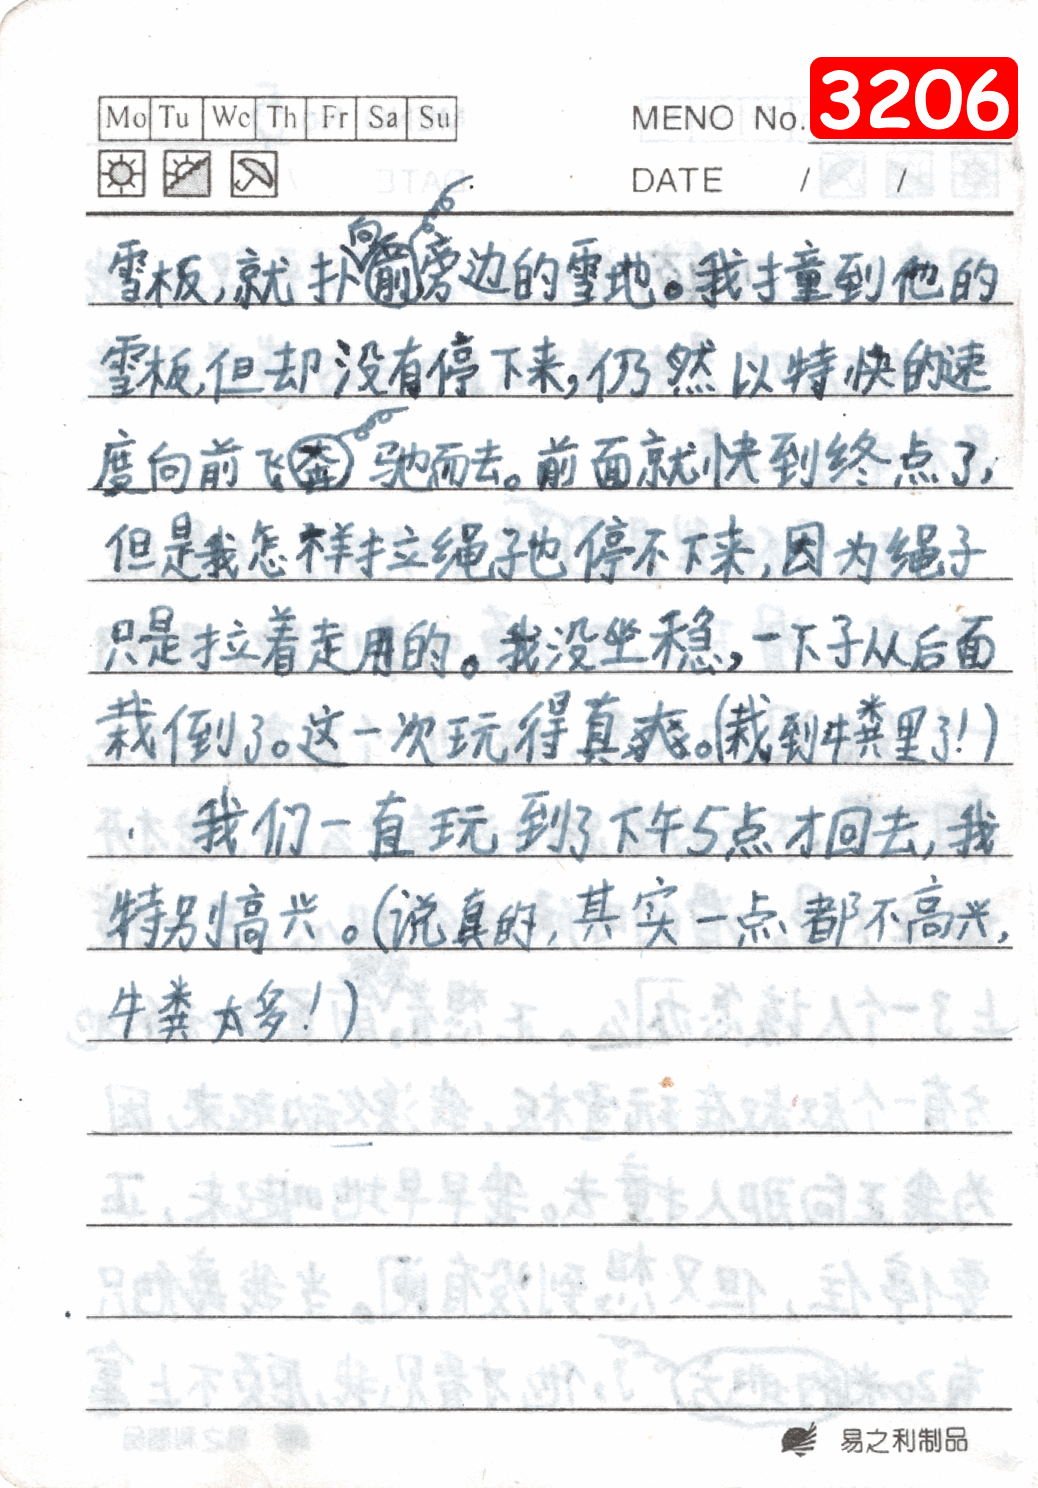 3206
Mo Tu We Th Fr Sa Su
MENO No.
DATE / /
雪板,就扑向旁边的雪地。我撞到他的
雪板,但却没有停下来,仍然以特快的速
度向前飞驰而去。前面就快到终点了,
但是我怎样拉绳子也停不下来,因为绳子
只是拉着走用的。我没坐稳,一下子从后面
栽倒了。这一次玩得真爽。(栽到牛粪里了!)
我们一直玩到了下午5点才回去,我
特别高兴。(说真的,其实一点都不高兴,
牛粪太多!)
易之利制品